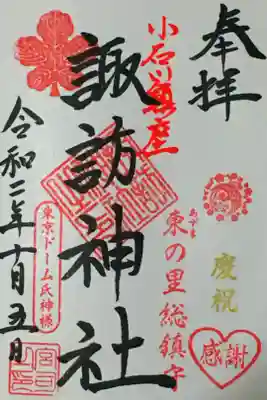 奉拝
慶祝
感謝
小石川鎮座
東の里総鎮守
あづま
諏訪神社
東京ドーム氏神様
令和二年十月五日